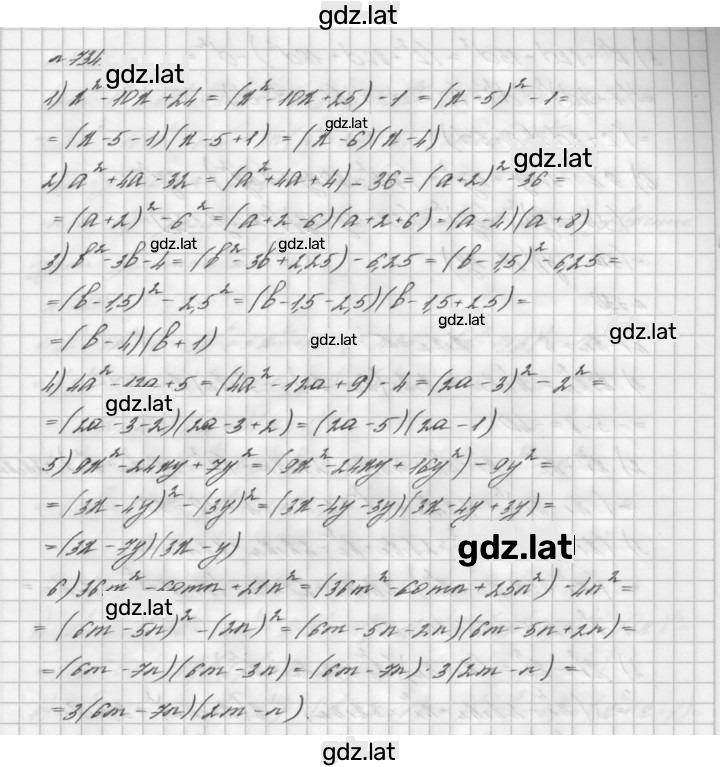 gdz.lat
n 734.
gdz.lat
1) x² - 10x + 24 = (x² - 10x + 25) - 1 = (x - 5)² - 1 =
gdz.lat
= (x - 5 - 1)(x - 5 + 1) = (x - 6)(x - 4)
gdz.lat
2) a² + 4a - 32 = (a² + 4a + 4) - 36 = (a + 2)² - 36 =
= (a + 2)² - 6² = (a + 2 - 6)(a + 2 + 6) = (a - 4)(a + 8)
gdz.lat gdz.lat
3) b² - 3b - 4 = (b² - 3b + 2,25) - 6,25 = (b - 1,5)² - 6,25 =
= (b - 1,5)² - 2,5² = (b - 1,5 - 2,5)(b - 1,5 + 2,5) =
gdz.lat
gdz.lat
= (b - 4)(b + 1)
gdz.lat
4) 4a² - 12a + 5 = (4a² - 12a + 9) - 4 = (2a - 3)² - 2² =
gdz.lat
= (2a - 3 - 2)(2a - 3 + 2) = (2a - 5)(2a - 1)
5) 9x² - 24xy + 7y² = (9x² - 24xy + 16y²) - 9y² =
= (3x - 4y)² - (3y)² = (3x - 4y - 3y)(3x - 4y + 3y) =
= (3x - 7y)(3x - y)
gdz.lat
6) 36m² - 60mn + 21n² = (36m² - 60mn + 25n²) - 4n² =
gdz.lat
= (6m - 5n)² - (2n)² = (6m - 5n - 2n)(6m - 5n + 2n) =
= (6m - 7n)(6m - 3n) = (6m - 7n) · 3(2m - n) =
= 3(6m - 7n)(2m - n).
gdz.lat